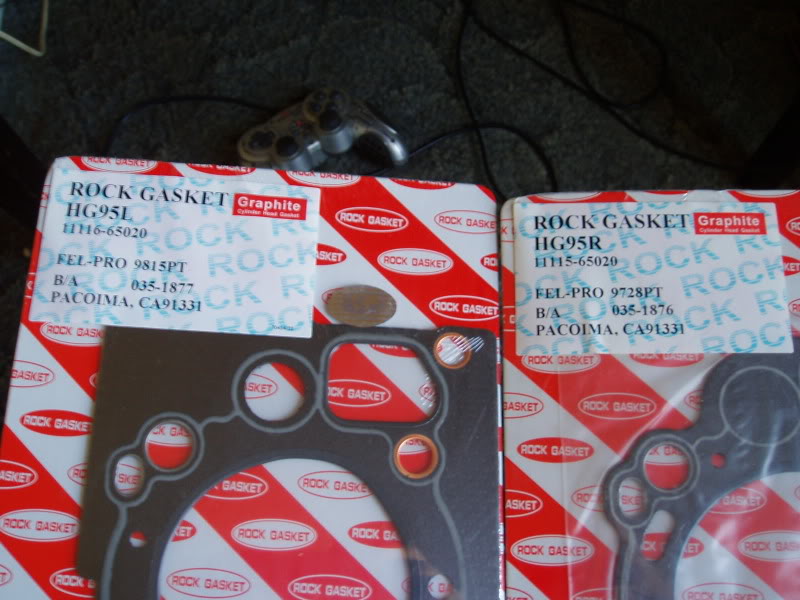 ROCK GASKET
HG95L
11116-65020
Graphite
Cylinder Head Gasket
FEL-PRO 9815PT
B/A 035-1877
PACOIMA, CA91331
ROCK GASKET
HG95R
11115-65020
Graphite
Cylinder Head Gasket
FEL-PRO 9728PT
B/A 035-1876
PACOIMA, CA91331
ROCK GASKET
ROCK GASKET
ROCK GASKET
ROCK GASKET
ROCK GASKET
ROCK GASKET
ROCK GASKET
ROCK GASKET
ROCK GASKET